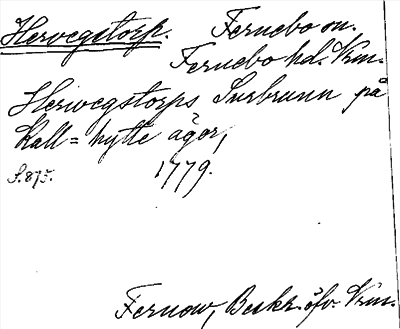 Hervegstorp. Fernebo sn.
Fernebo hd. Vrm.
Herwegstorps Surbrunn på
Kall=hytte ägor,
S. 875. 1779.
Fernow, Beskr. öfv. Vrm.